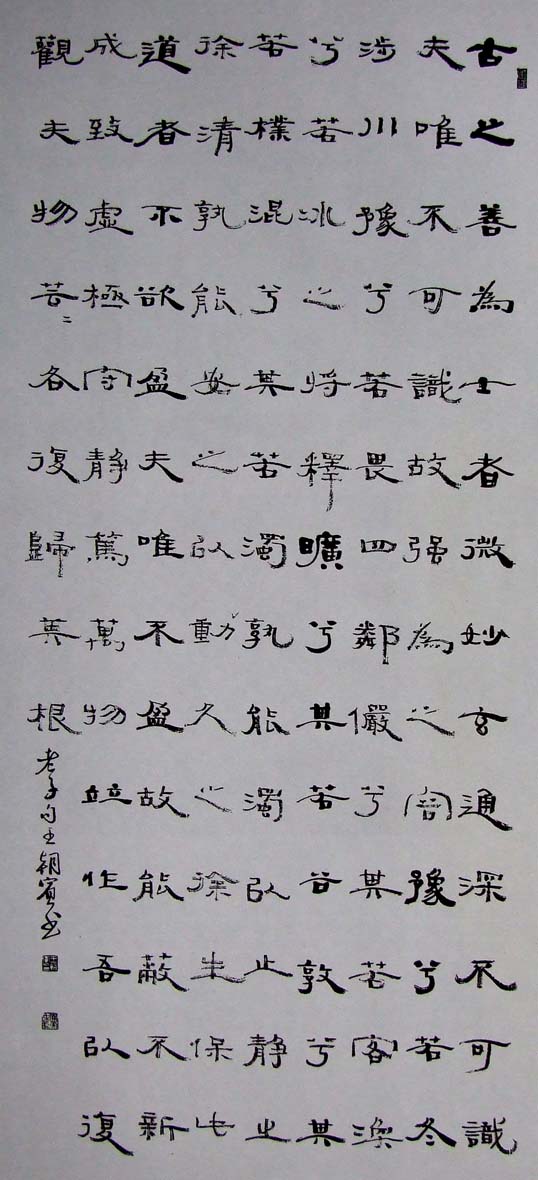 古之善為士者微妙玄通深不可識
夫唯不可識故强為之容豫兮若冬
涉川豫兮若畏四鄰儼兮其若客渙
兮若冰之将釋曠兮其若谷敦兮其
若樸混兮其若濁孰能濁以止靜之
徐清孰能安之以動久之徐生保此
道者不欲盈夫唯不盈故能蔽不新
成致虛極守靜篤萬物竝作吾以復
觀夫物芸〻各復歸其根
老子句王朝賓书